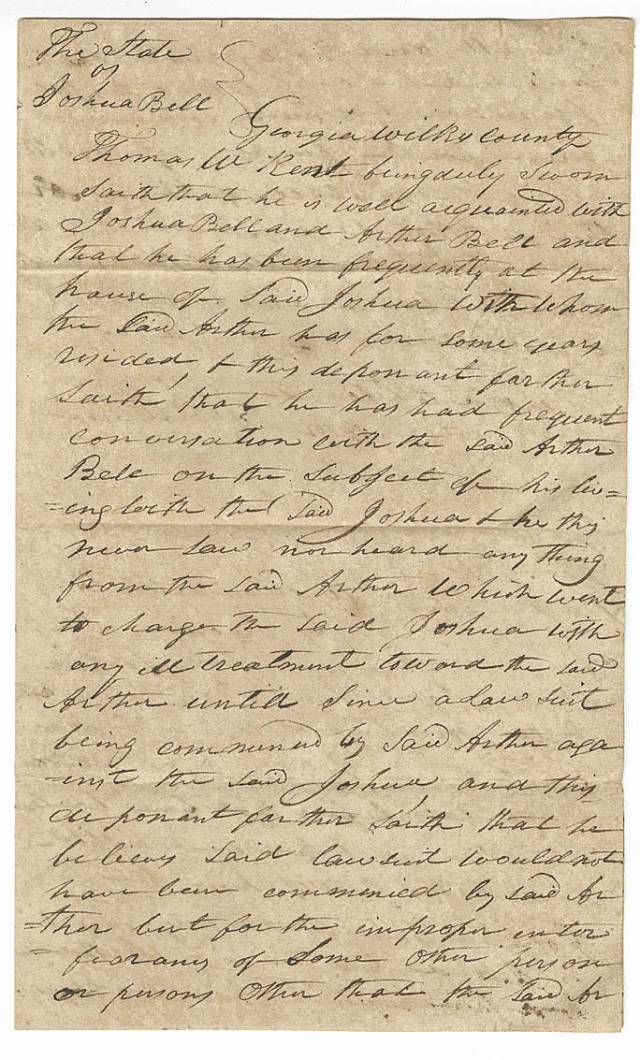 The State
of
Joshua Bell
Georgia Wilks County
Thomas W Kent being duly Sworn
Saith that he is well acquainted with
Joshua Bell and Arther Bell and
that he has been frequently at the
house of Said Joshua With Whom
the Said Arther has for Some years
resided, & this deponant farther
Saith, that he has had frequent
conversation with the said Arther
Bell on the Subject of his liv=
=ing with the Said Joshua & he this
never Saw nor heard any thing
from the Said Arther Which went
to charge the Said Joshua with
any ill treatment toward the said
Arther untill Since a law Suit
being commenced by Said Arther aga
=inst the Said Joshua, and this
deponant farther Saith that he
believes Said law suit would not
have been commenced by Said Ar
=ther but for the improper enter
=fearances of Some other person
or persons other that the Said Ar